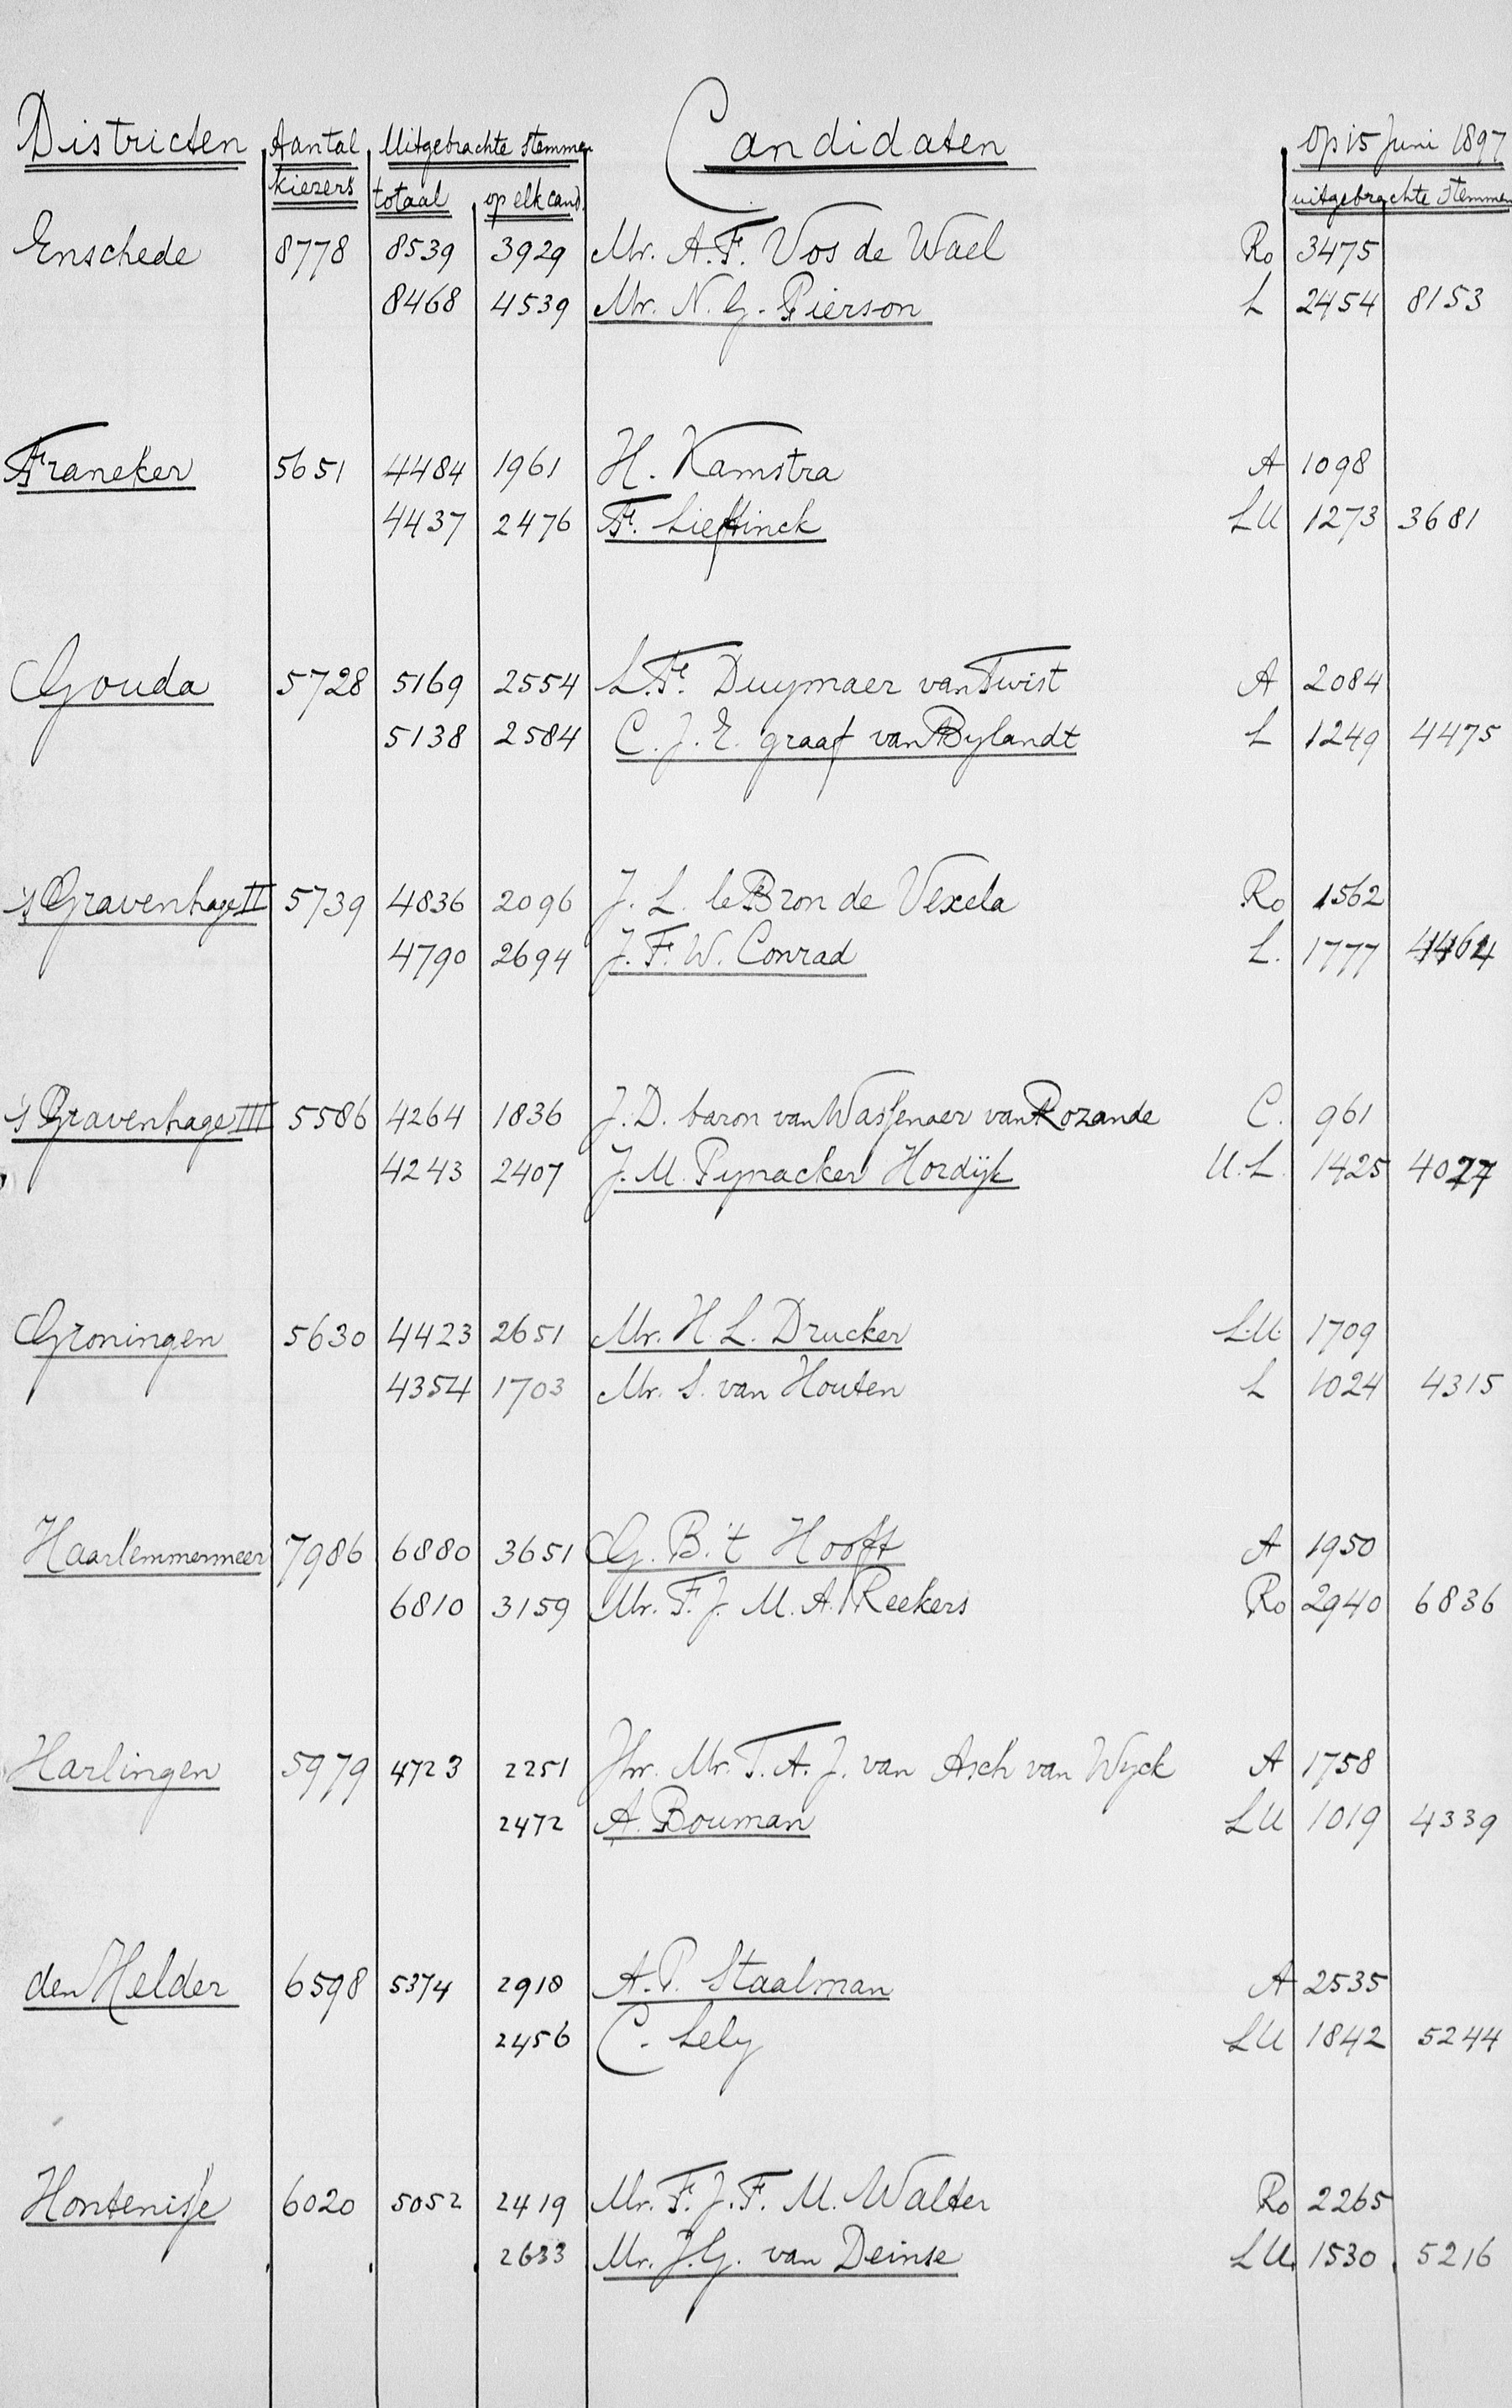 Districten Aantal Uitgebrachte stemmen Candidaten Op 15 Juni 1897
kiezers totaal op elk cand. uitgebrachte stemmen
Enschede 8778 8539 3929 Mr. A. F. Vos de Wael Ro 3475
8468 4539 Mr. N. G. Pierson L 2454 8153
Franeker 5651 4484 1961 H. Kamstra A 1098
4437 2476 F. Lieftinck LU 1273 3681
Gouda 5728 5169 2554 L. F. Duymaer van Twist A 2084
5138 2584 C. J. E. graaf van Bylandt L 1249 4475
's Gravenhage II 5739 4836 2096 J. L. le Bron de Vexela Ro 1562
4790 2694 J. F. W. Conrad L. 1777 4464
's Gravenhage III 5586 4264 1836 J. D. baron van Wassenaer van Rozande C. 961
4243 2407 J. M. Pynacker Hordijk U.L. 1425 4077
Groningen 5630 4423 2651 Mr. H. L. Drucker L.U. 1709
4354 1703 Mr. S. van Houten L 1024 4315
Haarlemmermeer 7986 6880 3651 G. B. 't Hooft A 1950
6810 3159 Mr. F. J. M. A. Reekers Ro 2940 6836
Harlingen 5979 4723 2251 Jhr. Mr. T. A. J. van Asch van Wyck A 1758
2472 A. Bouman LU 1019 4339
den Helder 6598 5374 2918 A. P. Staalman A 2535
2456 C. Lely LU 1842 5244
Hontenisse 6020 5052 2419 Mr. F. J. F. M. Walter Ro 2265
2633 Mr. J. G. van Deinse LU. 1530 5216